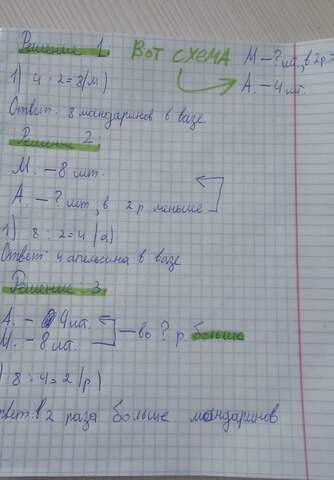 Решение 1. Вот схема М – ? шт., в 2 р
А. – 4 шт.
1) 4 · 2 = 8 (м.)
Ответ: 8 мандаринов в вазе
Решение 2.
М. – 8 шт.
А. – ? шт., в 2 р. меньше
1) 8 : 2 = 4 (а)
Ответ: 4 апельсина в вазе
Решение 3.
А. – 4 шт.
М. – 8 шт. – во ? р. больше
) 8 : 4 = 2 (р)
твет: в 2 раза больше мандаринов